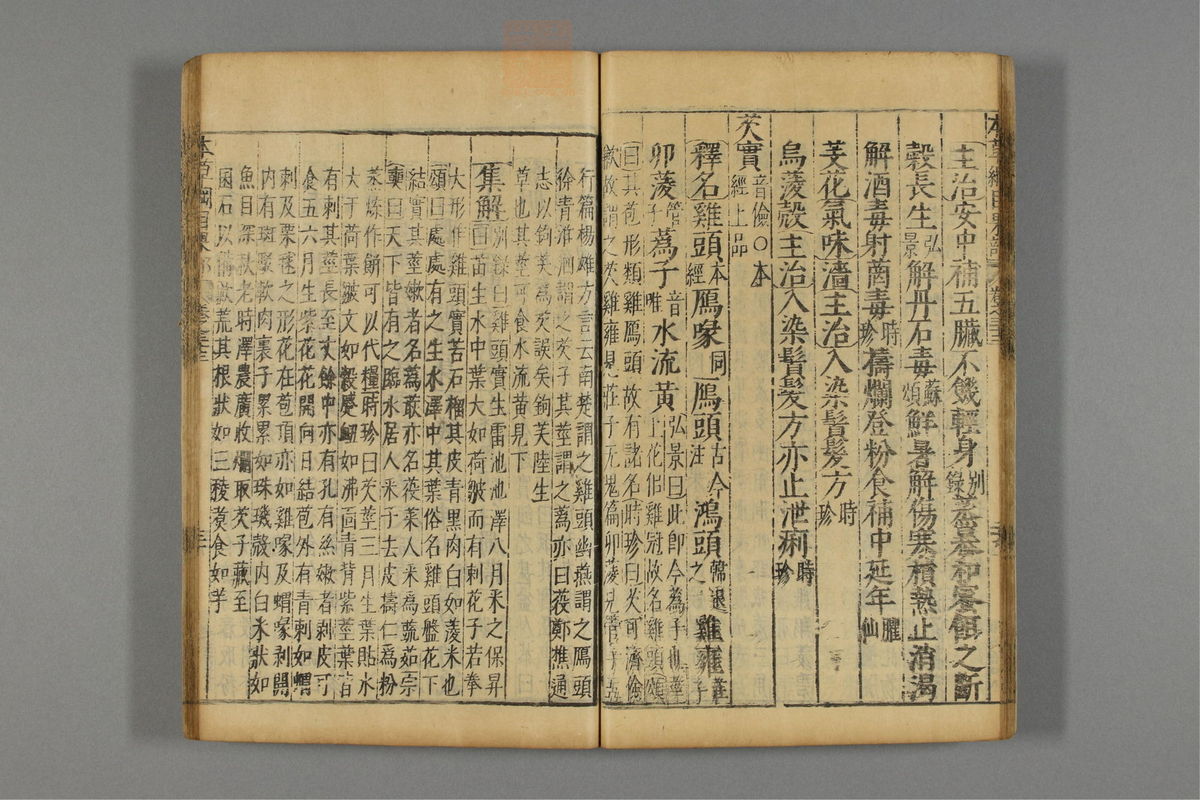 主治安中補五臟不饑輕身別錄蒸暴和蜜餌之斷
穀長生弘景解丹石毒蘇頌鮮者解傷寒積熱止消渴
解酒毒射菵毒時珍擣爛澄粉食補中延年臞仙
芰花氣味濇主治入染鬚髮方時珍
烏菱殼主治入染鬚髮方亦止泄痢時珍
芡實音儉○本經上品
釋名雞頭本經鴈喙同鴈頭古今注鴻頭韓退之雞雍莊子
卯菱管子蔿子音唯水流黃弘景曰此即今蔿子也莖上花似雞冠故名雞頭頌
曰其苞形類雞鴈頭故有諸名時珍曰芡可濟儉
歉故謂之芡雞雍見莊子无鬼篇卯菱見管子五
行篇楊雄方言云南楚謂之雞頭幽燕謂之鴈頭
徐青淮泗謂之芡子其莖謂之蔿亦曰䓈鄭樵通
志以鉤芺為芡誤矣鉤芺陸生
草也其莖可食水流黃見下
集解別錄曰雞頭實生雷池池澤八月采之保昇
曰苗生水中葉大如荷皺而有刺花子若拳
大形似雞頭實若石榴其皮青黑肉白如菱米也
頌曰處處有之生水澤中其葉俗名雞頭盤花下
結實其莖嫩者名蔿䓈亦名䓈菜人采為蔬茹宗
奭曰天下皆有之臨水居人采子去皮擣仁為粉
蒸煠作餅可以代糧時珍曰芡莖三月生葉貼水
大于荷葉皺文如縠蹙衄如沸面青背紫莖葉皆
有刺其莖長至丈餘中亦有孔有絲嫩者剥皮可
食五六月生紫花花開向日結苞外有青刺如蝟
刺及栗毬之形花在苞頂亦如雞喙及蝟喙剥開
内有斑駁軟肉裹子累累如珠璣殻内白米狀如
魚目深秋老時澤農廣收爛取芡子藏至
囷石以備歉荒其根狀如三稜煮食如芋